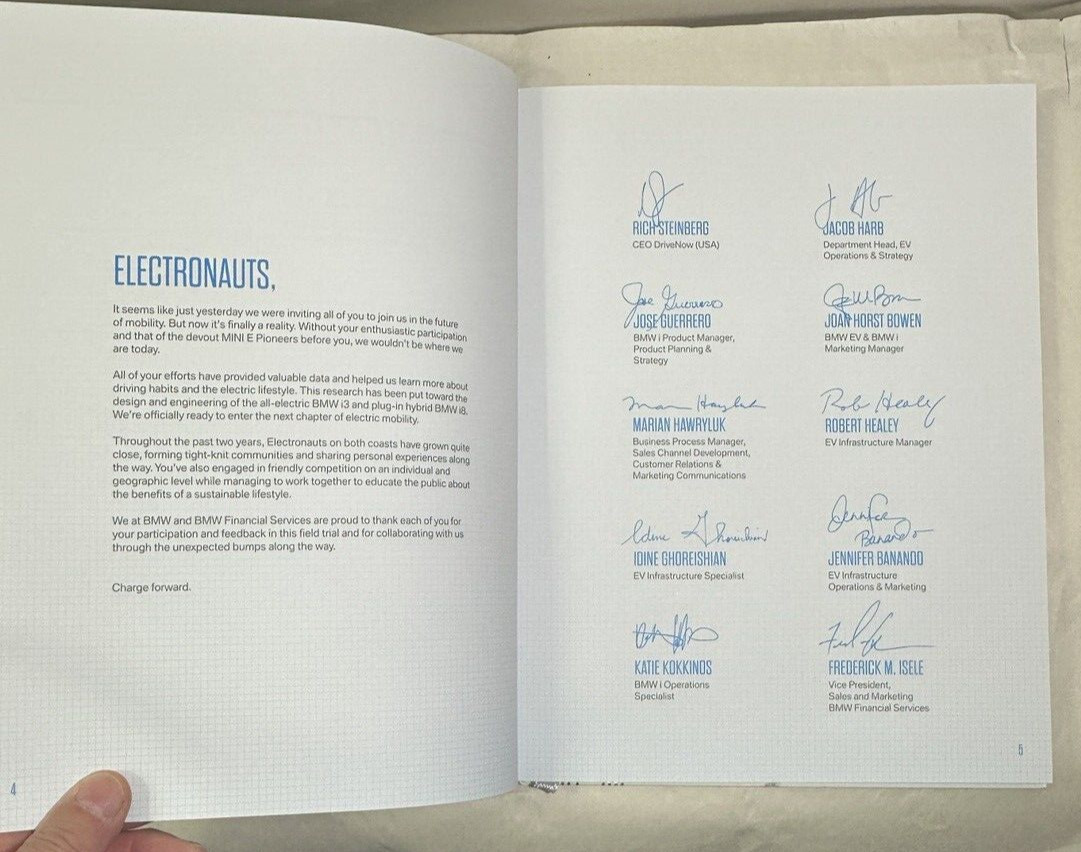 ELECTRONAUTS,
It seems like just yesterday we were inviting all of you to join us in the future
of mobility. But now it's finally a reality. Without your enthusiastic participation
and that of the devout MINI E Pioneers before you, we wouldn't be where we
are today.
All of your efforts have provided valuable data and helped us learn more about
driving habits and the electric lifestyle. This research has been put toward the
design and engineering of the all-electric BMW i3 and plug-in hybrid BMW i8.
We're officially ready to enter the next chapter of electric mobility.
Throughout the past two years, Electronauts on both coasts have grown quite
close, forming tight-knit communities and sharing personal experiences along
the way. You've also engaged in friendly competition on an individual and
geographic level while managing to work together to educate the public about
the benefits of a sustainable lifestyle.
We at BMW and BMW Financial Services are proud to thank each of you for
your participation and feedback in this field trial and for collaborating with us
through the unexpected bumps along the way.
Charge forward.
4
RICH STEINBERG
CEO DriveNow (USA)
JACOB HARB
Department Head, EV
Operations & Strategy
Jose Guerrero
JOSE GUERRERO
BMW i Product Manager,
Product Planning &
Strategy
JOAN HORST BOWEN
BMW EV & BMW i
Marketing Manager
MARIAN HAWRYLUK
Business Process Manager,
Sales Channel Development,
Customer Relations &
Marketing Communications
Rob Healey
ROBERT HEALEY
EV Infrastructure Manager
Idine Ghoreishian
IDINE GHOREISHIAN
EV Infrastructure Specialist
Jennifer
Banando
JENNIFER BANANDO
EV Infrastructure
Operations & Marketing
KATIE KOKKINOS
BMW i Operations
Specialist
FREDERICK M. ISELE
Vice President,
Sales and Marketing
BMW Financial Services
5